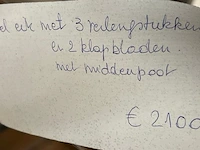 eik met 3 verlengstukken
en 2 klapbladen.
met middenpoot
€ 2100